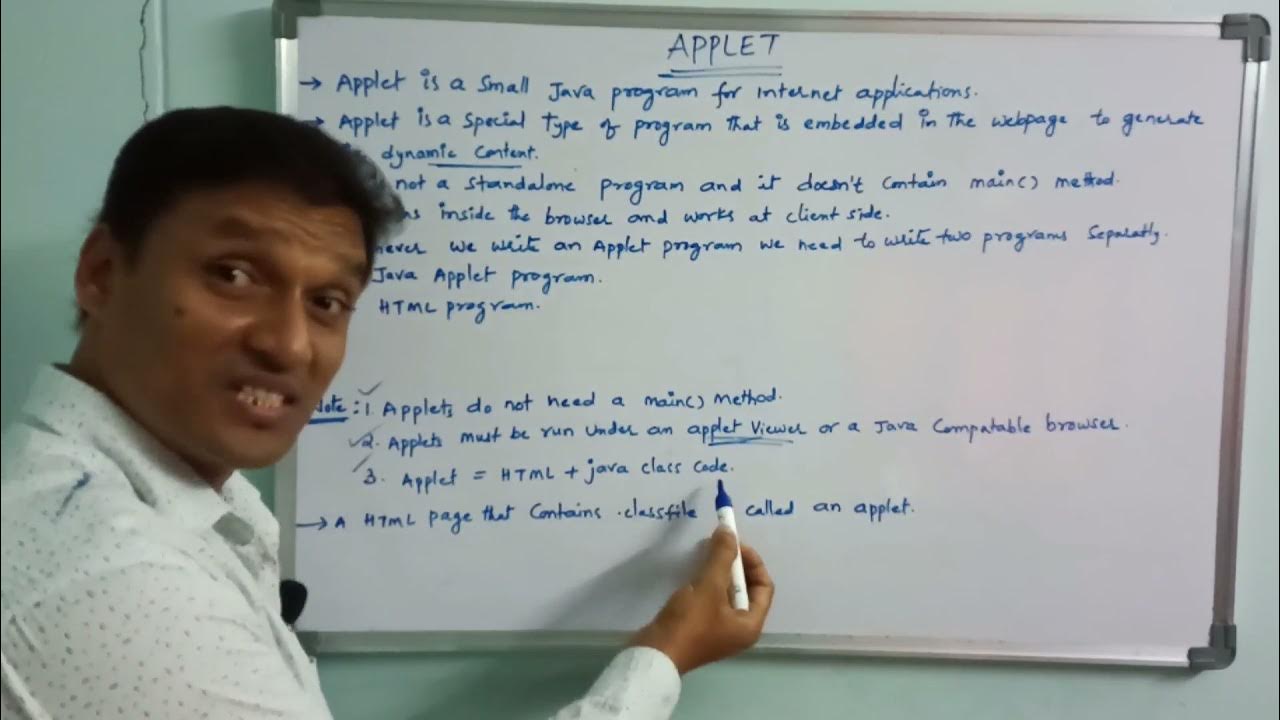 APPLET
→ Applet is a small Java program for Internet applications.
→ Applet is a special Type of program that is embedded in the webpage to generate
dynamic Content.
not a standalone program and it doesn't contain main() method.
inside the browser and works at client side.
we write an Applet program we need to write two programs Separatly.
Java Applet program.
HTML program.
Note: 1. Applets do not need a main() method.
2. Applets must be run under an applet Viewer or a Java Compatable browser.
3. Applet = HTML + java class Code.
→ A HTML page that Contains .classfile called an applet.